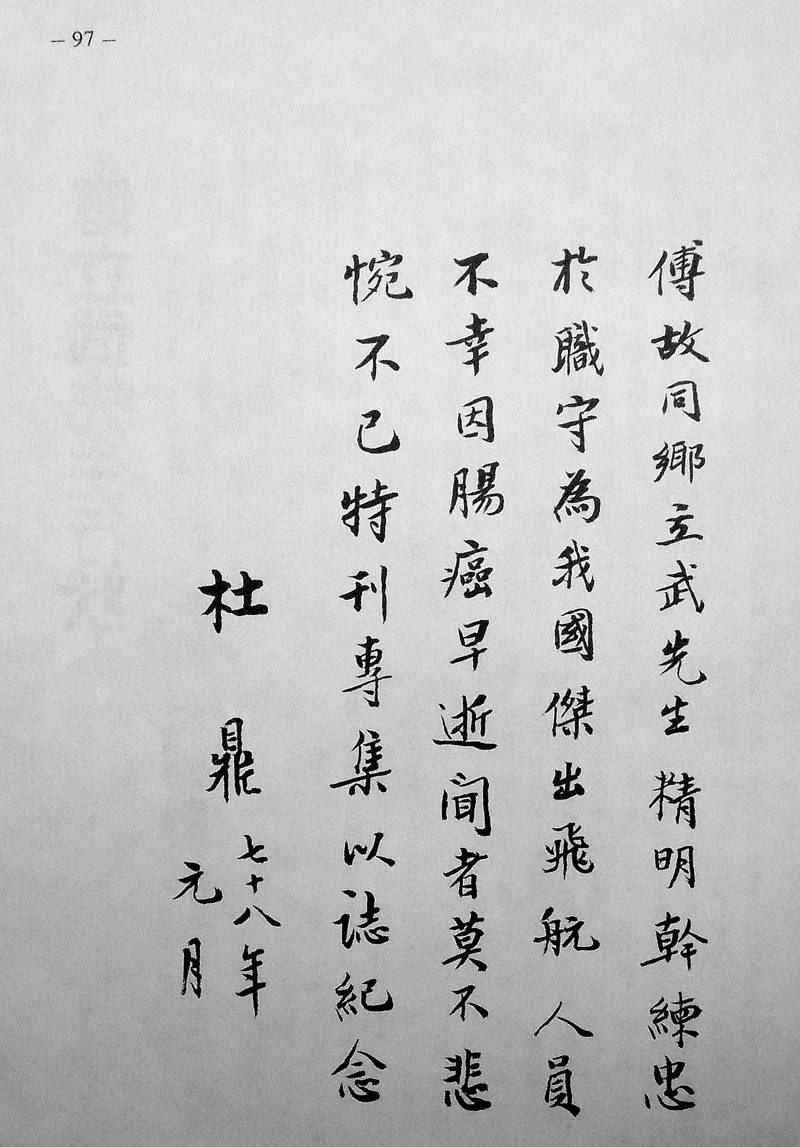 – 97 –
傅故同鄉立武先生精明幹練忠
於職守為我國傑出飛航人員
不幸因腸癌早逝聞者莫不悲
惋不已特刊專集以誌紀念
杜鼎
七十八年
元月